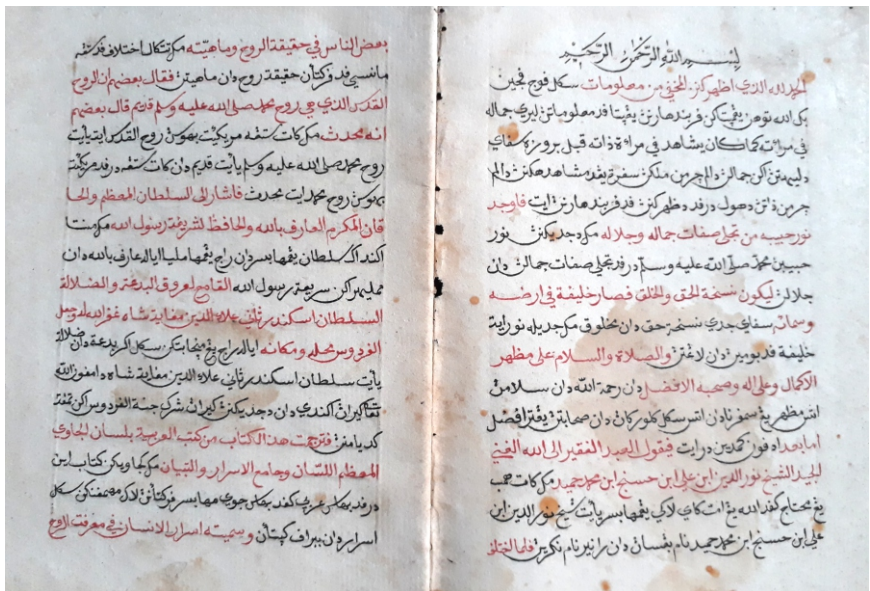 بسم الله الرحمن الرحيم
الحمد لله الذي اظهر كنز المخفي من معلومات سكل فوج فجين
بݢ الله توهن يڠ كن فربندهارن يڠ فد معلوماتن ليرى جماله
في مراته كما كان يشاهد في مراءة ذاته قبل بروزه سفاي
دليهتن اكن جمالن دالم چرمن سفرة يڠ دالم
چرمن ذاتن دهول درفد ظهركن فد فربندهارن ايت فاوجد
نور حبيبه من تجلي صفات جماله وجلاله مك دجديكن نور
حبيبن محمد صلى الله عليه وسلم درفد تجلي صفات جمالن دان
جلالن ليكون نسخة الحق والخلق فصار خليفة في ارضه
وسمائه سفاي جدي نسخة حق دان مخلوق مك جديله نور ايت
خليفة فد بومين دان لاڠتن والصلاة والسلام على مظهر
الاكمال وعلى اله وصحبه الافضل دان رحمة الله دان سلامن
اتس مظهر يڠ سمفرن دان اتس سكل كلورݢان دان صحابتن يڠ ترافضل
اما بعد ادفون كمدين درايت فيقول العبد الفقير الى الله الغني
المجيد الشيخ نور الدين ابن علي ابن حسنجي ابن محمد حميد مك كات همب
يڠ محتاج كفد الله يڠ امت كاي لاݢي يڠ مها بسر يائت شيخ نور الدين ابن
علي ابن حسنجي ابن محمد حميد نام بڠسان دان رانير نام نڬرين فلما اختلف
بعض الناس في حقيقة الروح وماهيته مك تتكال اختلاف فد ستڠه
مأنسي فد ڠتأن حقيقة روح دان ماهيتن فقال بعضهم ان الروح
القدس الذي هي روح محمد صلى الله عليه وسلم قديم قال بعضهم
انه محدث مك كات ستڠه مريكئيت بهوسن روح القدس ايت يائت
روح محمد صلى الله عليه وسلم يائت قديم دان كات ستڠه درفد مريكئيت
بهوسن روح محمد ايت محدث فاشار الى السلطان المعظم والخا
قان المكرم العارف بالله والحافظ لشريعة رسول الله مك منتا
اكنداك سلطان يڠ مها بسر دان راج يڠ مها مليا اياله عارف بالله دان
مميلهراكن شريعة رسول الله القامع لعروق البدعة والضلالة
السلطان اسكندر ثاني علاء الدين مغاية شاه غفر الله له وجعل
الفردوس محله ومكانه اياله راج يڠ منچابتكن سكل اكر بدعة دان ضلالة
يائت سلطان اسكندر ثاني علاء الدين مغاية شاه دامفون الله
كيران اكندي دان دجديكن كيران شرݢ جنة الفردوس اكن تمفت
كديامن فترجمت هذا الكتاب من كتب العربية بلسان الجاوي
المعظم اللسان وجامع الاسرار والتبيان مك كجاويكن كتاب اين
درفد بهاس عربي كفد بهاس جاوي مها بسر فركتأن لاݢي مڠهمفنكن سكل
اسرار دان ببراف كپتأن وسميته اسرار الانسان في معرفة الروح